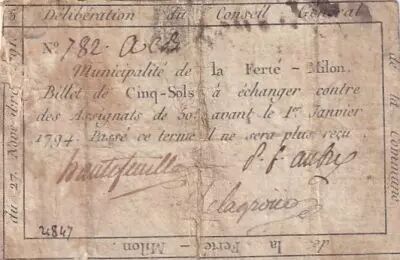 Délibération du Conseil Général
de la Commune
du 27. Novembre 1791.
N.º 782.
Municipalité de la Ferté - Milon.
Billet de Cinq-Sols à échanger contre
des Assignats de 50.ˢ avant le 1.er Janvier
1794. Passé ce terme il ne sera plus reçu.
hautefeuille P. f. aubry
Lagroue
4847
de la Ferté - Milon.